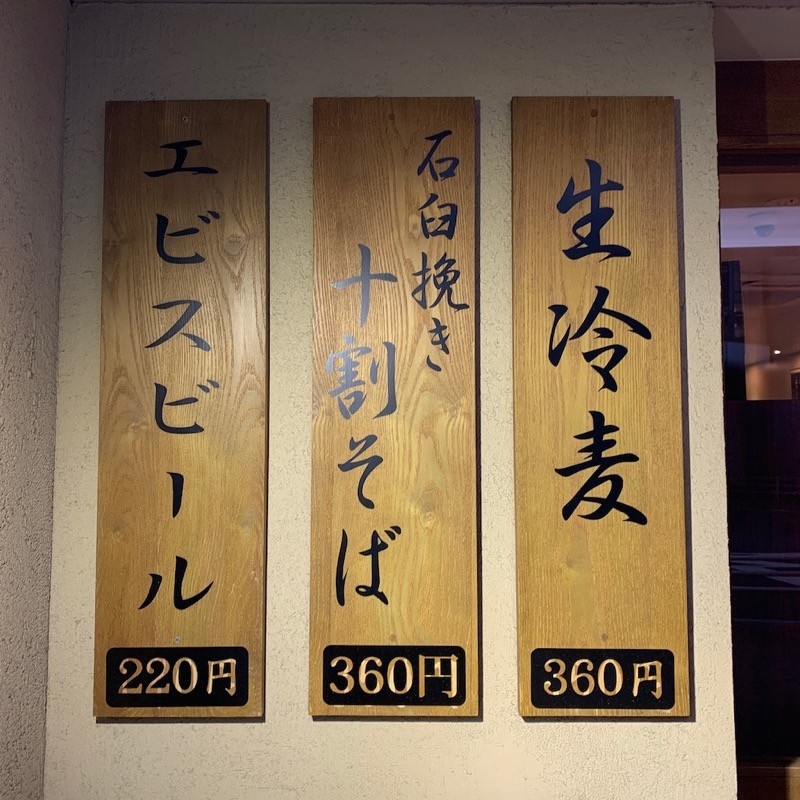 生冷麦
360円
石臼挽き
十割そば
360円
エビスビール
220円